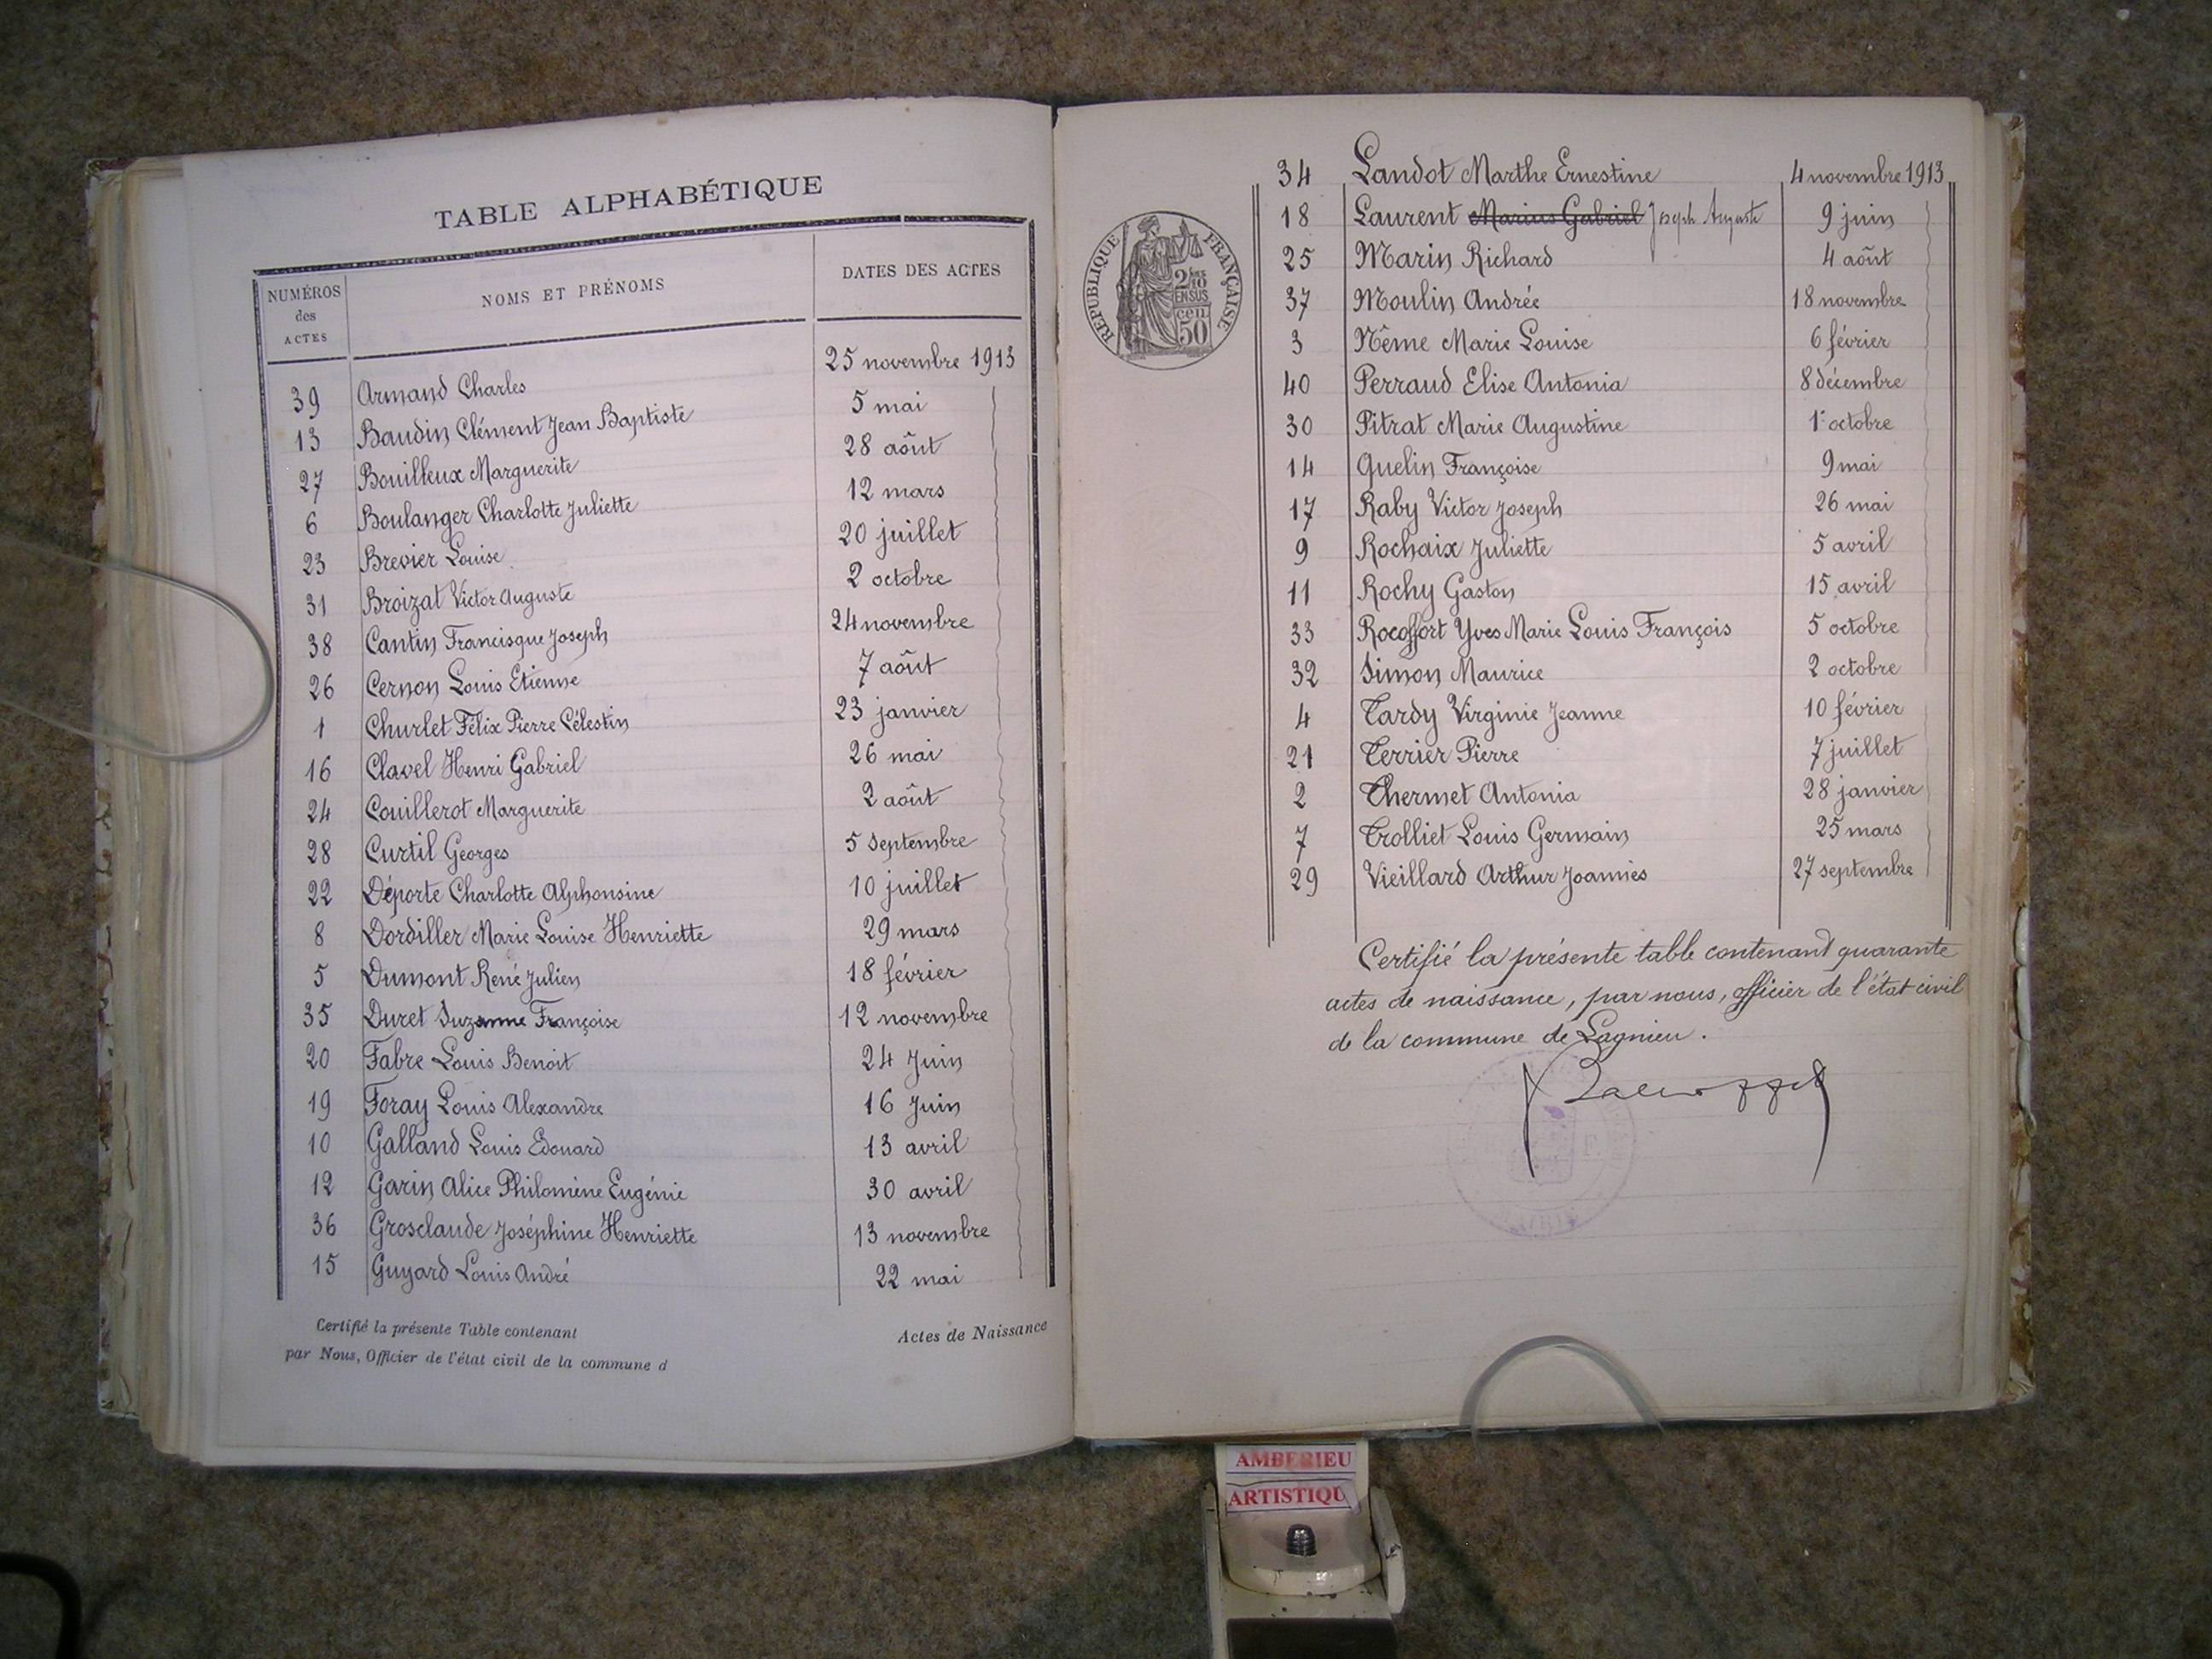 TABLE ALPHABÉTIQUE
NUMÉROS des ACTES NOMS ET PRÉNOMS DATES DES ACTES
39 Armand Charles 25 novembre 1913
13 Baudin Clément Jean Baptiste 5 mai
27 Bouilleux Marguerite 28 août
6 Boulanger Charlotte Juliette 12 mars
23 Brevier Louise 20 juillet
31 Broizat Victor Auguste 2 octobre
38 Cantin Francisque Joseph 24 novembre
26 Cernon Louis Etienne 7 août
1 Churlet Félix Pierre Célestin 23 janvier
16 Clavel Henri Gabriel 26 mai
24 Couillerot Marguerite 2 août
28 Curtil Georges 5 septembre
22 Déporte Charlotte Alphonsine 10 juillet
8 Dordiller Marie Louise Henriette 29 mars
5 Dumont René Julien 18 février
35 Duret Suzanne Françoise 12 novembre
20 Fabre Louis Benoit 24 Juin
19 Foray Louis Alexandre 16 Juin
10 Galland Louis Edouard 13 avril
12 Garin Alice Philomène Eugénie 30 avril
36 Grosclaude Joséphine Henriette 13 novembre
15 Guyard Louis André 22 mai
Certifié la présente Table contenant Actes de Naissance
par Nous, Officier de l'état civil de la commune d
34 Landot Marthe Ernestine 4 novembre 1913
18 Laurent Marius Gabriel Joseph Auguste 9 juin
25 Marin Richard 4 août
37 Moulin Andrée 18 novembre
3 Nême Marie Louise 6 février
40 Perraud Elise Antonia 8 décembre
30 Pitrat Marie Augustine 1er octobre
14 Quelin Françoise 9 mai
17 Raby Victor Joseph 26 mai
9 Rochaix Juliette 5 avril
11 Rochy Gaston 15 avril
33 Rocoffort Yves Marie Louis François 5 octobre
32 Simon Maurice 2 octobre
4 Tardy Virginie Jeanne 10 février
21 Terrier Pierre 7 juillet
2 Thermet Antonia 28 janvier
7 Trolliet Louis Germain 25 mars
29 Vieillard Arthur Joannès 27 septembre
RÉPUBLIQUE FRANÇAISE
2/10
EN SUS
cen
50
Certifié la présente table contenant quarante
actes de naissance, par nous, officier de l'état civil
de la commune de Lagnieu.
AMBERIEU
ARTISTIQU